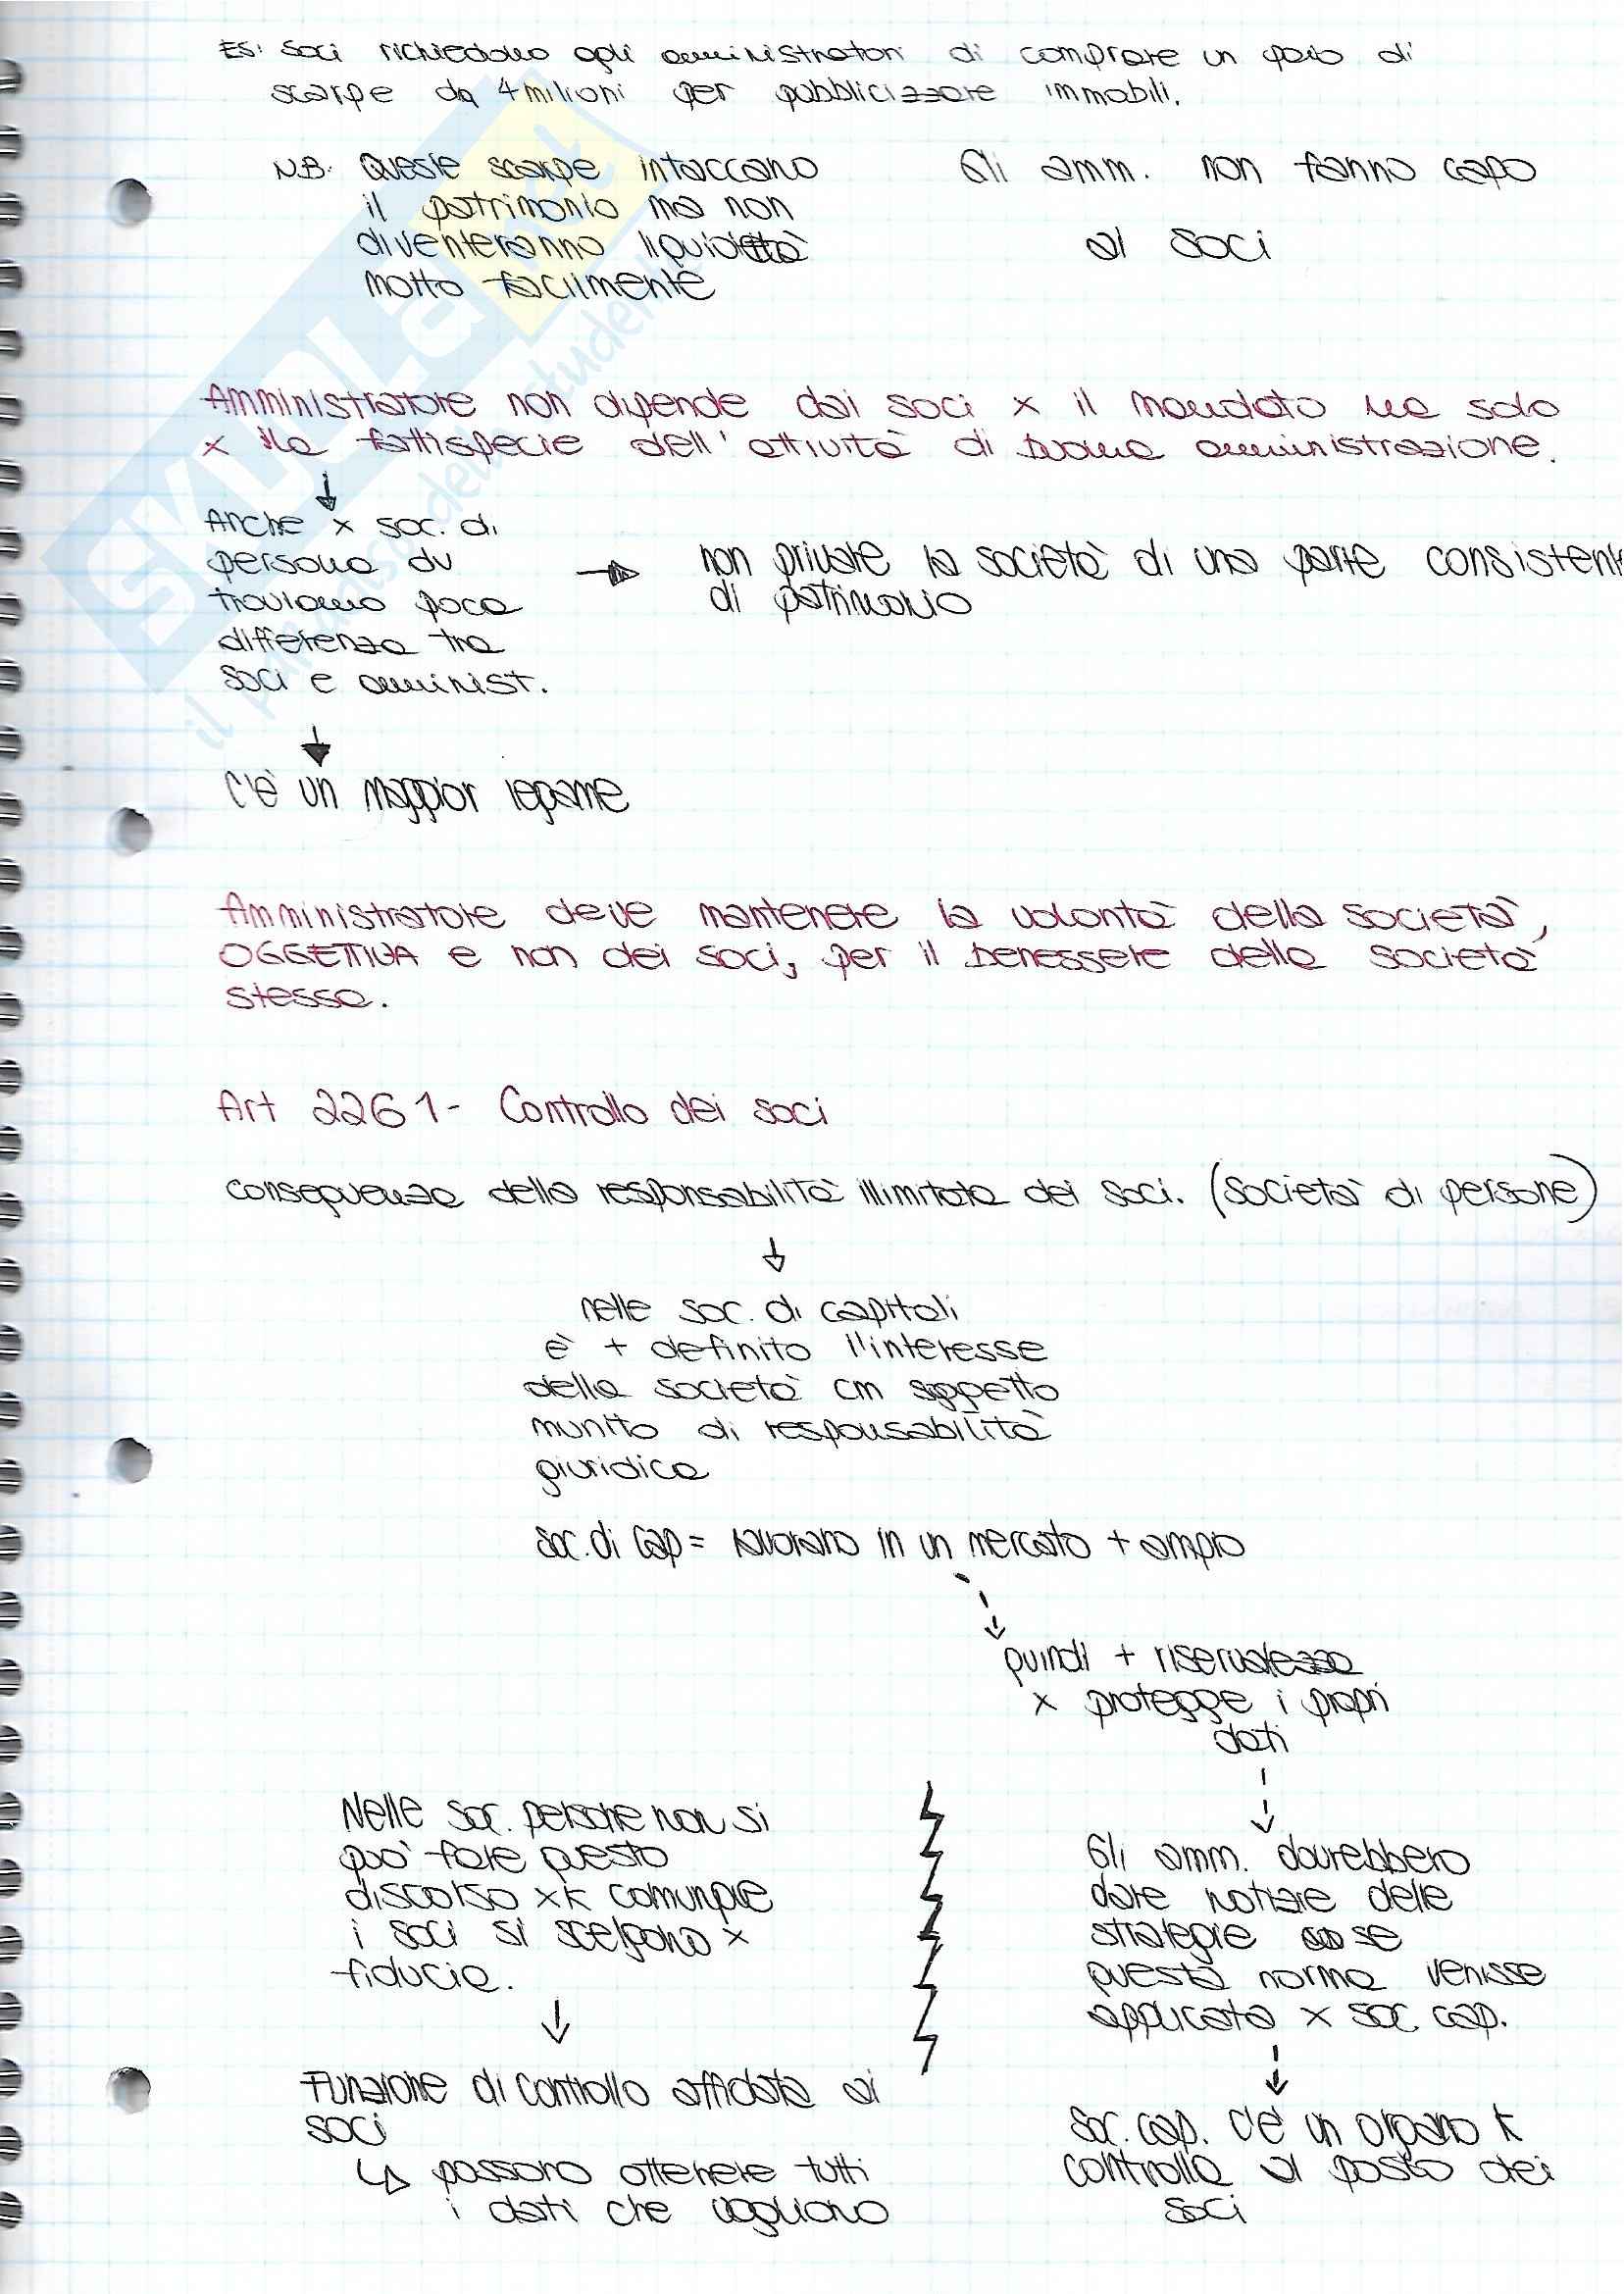 Es: Soci richiedono agli amministratori di comprare un paio di
scarpe da 4 milioni per pubblicizzare immobili.
N.B. Queste scarpe intaccano
il patrimonio ma non
diventeranno liquidità
molto facilmente
Gli amm. non fanno capo
ai soci
Amministratore non dipende dai soci x il mandato ma solo
x la fattispecie dell'attività di buona amministrazione.
↓
Anche x soc. di
persona
troviamo poca
differenza tra
soci e amminist.
→ non privare la società di una parte consistente
di patrimonio
↓
C'è un maggior legame
Amministratore deve mantenere la volontà della società,
OGGETTIVA e non dei soci, per il benessere della società
stessa.
Art 2261 - Controllo dei soci
conseguenza della responsabilità illimitata dei soci. (società di persone)
↓
nelle soc. di capitali
è + definito l'interesse
della società cm soggetto
munito di responsabilità
giuridica
soc. di cap = lavorano in un mercato + ampio
quindi + riservatezza
x protegge i propri
dati
Nelle soc. persone non si
può fare questo
discorso xk comunque
i soci si scelgono x
fiducia.
↓
Funzione di controllo affidata ai
soci
↳ possono ottenere tutti
i dati che vogliono
Gli amm. dovrebbero
dare notizie delle
strategie se
questa norma venisse
applicata x soc cap.
↓
soc. cap. c'è un organo k
controlla al posto dei
soci
SKUOLA.net
il paradiso dello studente